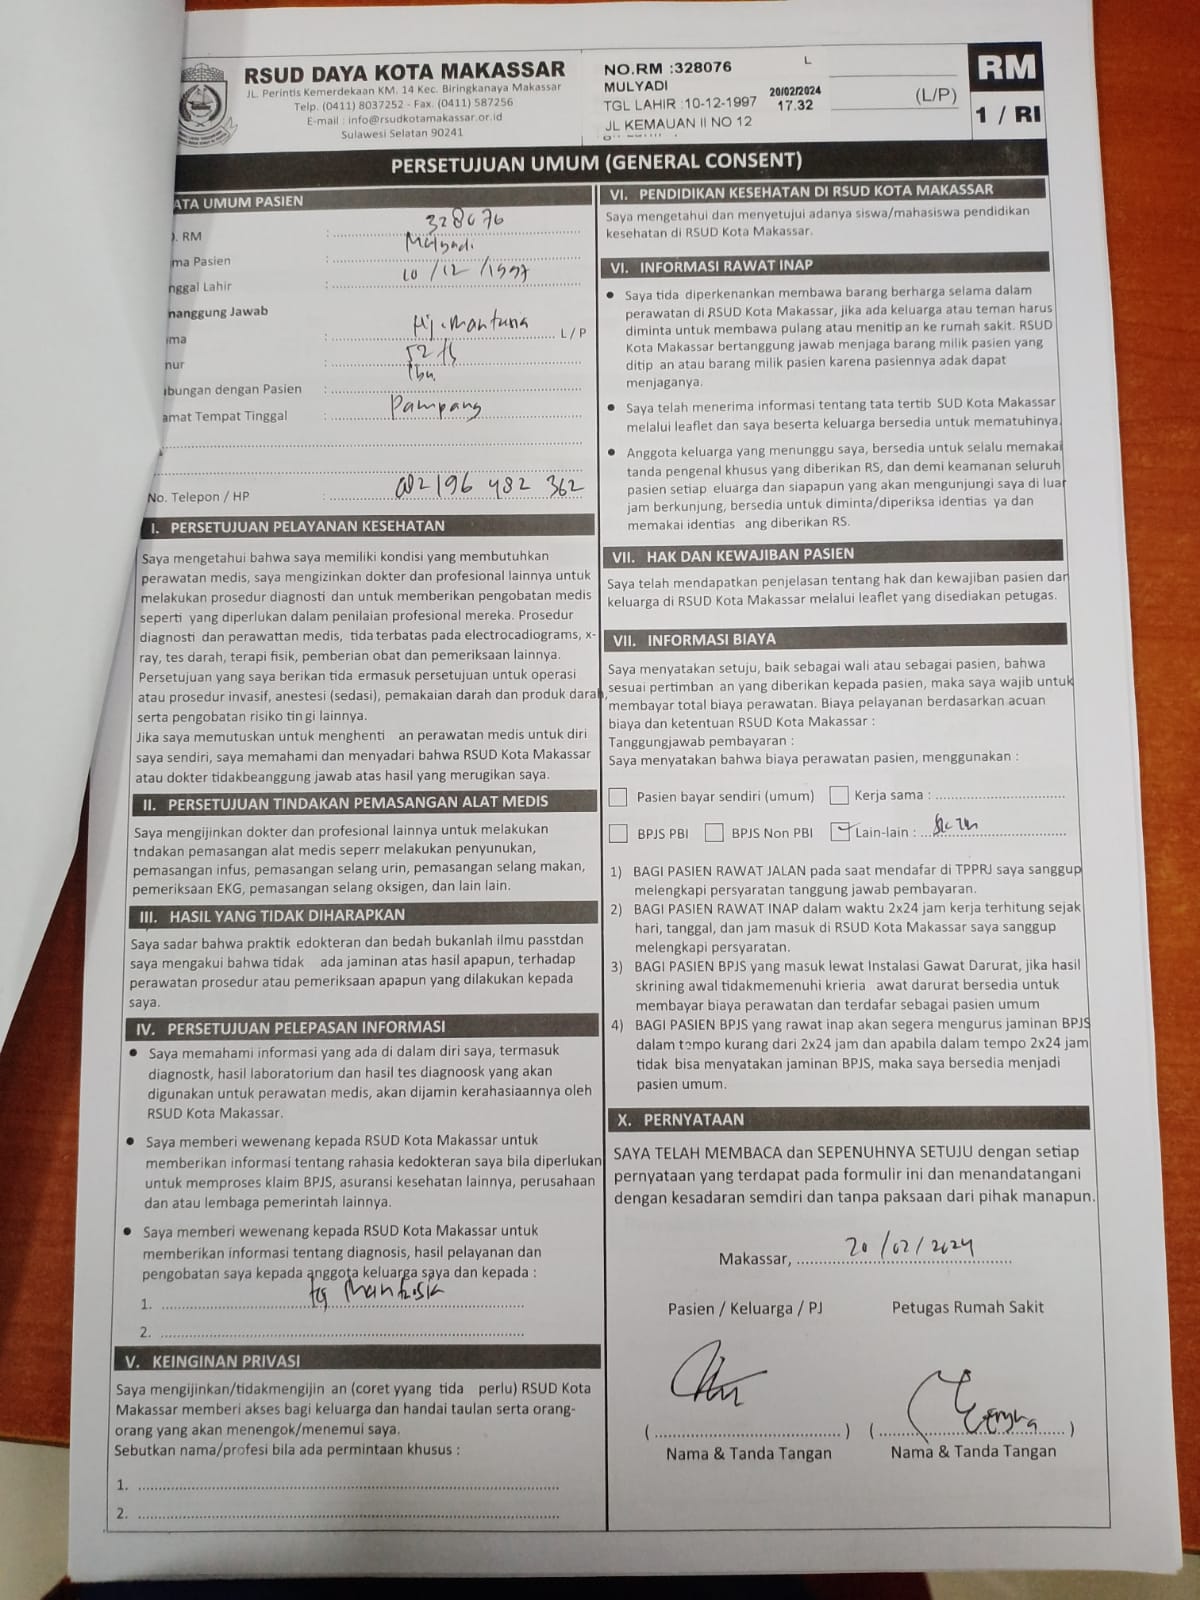 RSUD DAYA KOTA MAKASSAR
JL. Perintis Kemerdekaan KM. 14 Kec. Biringkanaya Makassar
Telp. (0411) 8037252 - Fax. (0411) 587256
E-mail : info@rsudkotamakassar.or.id
Sulawesi Selatan 90241
NO.RM :328076 L
MULYADI
TGL LAHIR :10-12-1997
20/02/2024
17.32
JL KEMAUAN II NO 12
(L/P)
RM
1 / RI
PERSETUJUAN UMUM (GENERAL CONSENT)
ATA UMUM PASIEN
. RM : 328076
ma Pasien : Mulyadi
nggal Lahir : 10 / 12 / 1997
nanggung Jawab
ma : Hj. L / P
mur : 52 th
bungan dengan Pasien : Ibu
amat Tempat Tinggal : Pampang
No. Telepon / HP : 196 482 362
I. PERSETUJUAN PELAYANAN KESEHATAN
Saya mengetahui bahwa saya memiliki kondisi yang membutuhkan
perawatan medis, saya mengizinkan dokter dan profesional lainnya untuk
melakukan prosedur diagnosti dan untuk memberikan pengobatan medis
seperti yang diperlukan dalam penilaian profesional mereka. Prosedur
diagnosti dan perawattan medis, tida terbatas pada electrocadiograms, x-
ray, tes darah, terapi fisik, pemberian obat dan pemeriksaan lainnya.
Persetujuan yang saya berikan tida ermasuk persetujuan untuk operasi
atau prosedur invasif, anestesi (sedasi), pemakaian darah dan produk darah,
serta pengobatan risiko tin gi lainnya.
Jika saya memutuskan untuk menghenti an perawatan medis untuk diri
saya sendiri, saya memahami dan menyadari bahwa RSUD Kota Makassar
atau dokter tidakbeanggung jawab atas hasil yang merugikan saya.
II. PERSETUJUAN TINDAKAN PEMASANGAN ALAT MEDIS
Saya mengijinkan dokter dan profesional lainnya untuk melakukan
tndakan pemasangan alat medis seperr melakukan penyunukan,
pemasangan infus, pemasangan selang urin, pemasangan selang makan,
pemeriksaan EKG, pemasangan selang oksigen, dan lain lain.
III. HASIL YANG TIDAK DIHARAPKAN
Saya sadar bahwa praktik edokteran dan bedah bukanlah ilmu passtdan
saya mengakui bahwa tidak ada jaminan atas hasil apapun, terhadap
perawatan prosedur atau pemeriksaan apapun yang dilakukan kepada
saya.
IV. PERSETUJUAN PELEPASAN INFORMASI
• Saya memahami informasi yang ada di dalam diri saya, termasuk
diagnostk, hasil laboratorium dan hasil tes diagnoosk yang akan
digunakan untuk perawatan medis, akan dijamin kerahasiaannya oleh
RSUD Kota Makassar.
• Saya memberi wewenang kepada RSUD Kota Makassar untuk
memberikan informasi tentang rahasia kedokteran saya bila diperlukan
untuk memproses klaim BPJS, asuransi kesehatan lainnya, perusahaan
dan atau lembaga pemerintah lainnya.
• Saya memberi wewenang kepada RSUD Kota Makassar untuk
memberikan informasi tentang diagnosis, hasil pelayanan dan
pengobatan saya kepada anggota keluarga saya dan kepada :
1.
2.
V. KEINGINAN PRIVASI
Saya mengijinkan/tidakmengijin an (coret yyang tida perlu) RSUD Kota
Makassar memberi akses bagi keluarga dan handai taulan serta orang-
orang yang akan menengok/menemui saya.
Sebutkan nama/profesi bila ada permintaan khusus :
1.
2.
VI. PENDIDIKAN KESEHATAN DI RSUD KOTA MAKASSAR
Saya mengetahui dan menyetujui adanya siswa/mahasiswa pendidikan
kesehatan di RSUD Kota Makassar.
VI. INFORMASI RAWAT INAP
• Saya tida diperkenankan membawa barang berharga selama dalam
perawatan di RSUD Kota Makassar, jika ada keluarga atau teman harus
diminta untuk membawa pulang atau menitip an ke rumah sakit. RSUD
Kota Makassar bertanggung jawab menjaga barang milik pasien yang
ditip an atau barang milik pasien karena pasiennya adak dapat
menjaganya.
• Saya telah menerima informasi tentang tata tertib SUD Kota Makassar
melalui leaflet dan saya beserta keluarga bersedia untuk mematuhinya.
• Anggota keluarga yang menunggu saya, bersedia untuk selalu memakai
tanda pengenal khusus yang diberikan RS, dan demi keamanan seluruh
pasien setiap eluarga dan siapapun yang akan mengunjungi saya di luar
jam berkunjung, bersedia untuk diminta/diperiksa identias ya dan
memakai identias ang diberikan RS.
VII. HAK DAN KEWAJIBAN PASIEN
Saya telah mendapatkan penjelasan tentang hak dan kewajiban pasien dan
keluarga di RSUD Kota Makassar melalui leaflet yang disediakan petugas.
VII. INFORMASI BIAYA
Saya menyatakan setuju, baik sebagai wali atau sebagai pasien, bahwa
sesuai pertimban an yang diberikan kepada pasien, maka saya wajib untuk
membayar total biaya perawatan. Biaya pelayanan berdasarkan acuan
biaya dan ketentuan RSUD Kota Makassar :
Tanggungjawab pembayaran :
Saya menyatakan bahwa biaya perawatan pasien, menggunakan :
Pasien bayar sendiri (umum) Kerja sama :
BPJS PBI BPJS Non PBI Lain-lain :
1) BAGI PASIEN RAWAT JALAN pada saat mendafar di TPPRJ saya sanggup
melengkapi persyaratan tanggung jawab pembayaran.
2) BAGI PASIEN RAWAT INAP dalam waktu 2x24 jam kerja terhitung sejak
hari, tanggal, dan jam masuk di RSUD Kota Makassar saya sanggup
melengkapi persyaratan.
3) BAGI PASIEN BPJS yang masuk lewat Instalasi Gawat Darurat, jika hasil
skrining awal tidakmemenuhi krieria awat darurat bersedia untuk
membayar biaya perawatan dan terdafar sebagai pasien umum
4) BAGI PASIEN BPJS yang rawat inap akan segera mengurus jaminan BPJS
dalam tempo kurang dari 2x24 jam dan apabila dalam tempo 2x24 jam
tidak bisa menyatakan jaminan BPJS, maka saya bersedia menjadi
pasien umum.
X. PERNYATAAN
SAYA TELAH MEMBACA dan SEPENUHNYA SETUJU dengan setiap
pernyataan yang terdapat pada formulir ini dan menandatangani
dengan kesadaran semdiri dan tanpa paksaan dari pihak manapun.
Makassar, 20 / 02 / 2024
Pasien / Keluarga / PJ Petugas Rumah Sakit
( ) ( )
Nama & Tanda Tangan Nama & Tanda Tangan